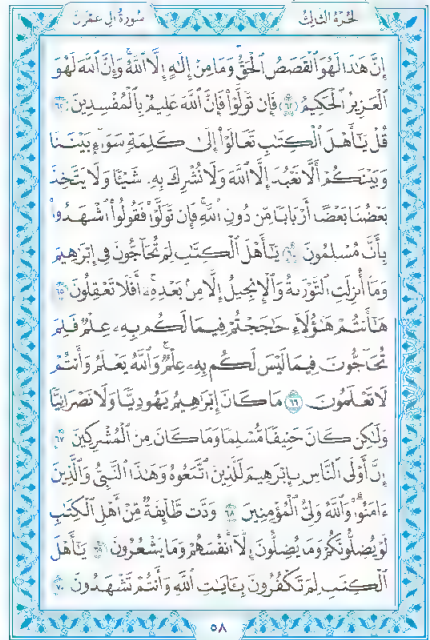 سورة آل عمران
الجزء الثالث
إِنَّ هَٰذَا لَهُوَ ٱلْقَصَصُ ٱلْحَقُّ وَمَا مِنْ إِلَٰهٍ إِلَّا ٱللَّهُ وَإِنَّ ٱللَّهَ لَهُوَ
ٱلْعَزِيزُ ٱلْحَكِيمُ ٦٢ فَإِن تَوَلَّوْا۟ فَإِنَّ ٱللَّهَ عَلِيمٌۢ بِٱلْمُفْسِدِينَ ٦٣
قُلْ يَٰٓأَهْلَ ٱلْكِتَٰبِ تَعَالَوْا۟ إِلَىٰ كَلِمَةٍ سَوَآءٍۭ بَيْنَنَا
وَبَيْنَكُمْ أَلَّا نَعْبُدَ إِلَّا ٱللَّهَ وَلَا نُشْرِكَ بِهِۦ شَيْـًٔا وَلَا يَتَّخِذَ
بَعْضُنَا بَعْضًا أَرْبَابًا مِّن دُونِ ٱللَّهِ فَإِن تَوَلَّوْا۟ فَقُولُوا۟ ٱشْهَدُوا۟
بِأَنَّا مُسْلِمُونَ ٦٤ يَٰٓأَهْلَ ٱلْكِتَٰبِ لِمَ تُحَآجُّونَ فِىٓ إِبْرَٰهِيمَ
وَمَآ أُنزِلَتِ ٱلتَّوْرَىٰةُ وَٱلْإِنجِيلُ إِلَّا مِنۢ بَعْدِهِۦٓ أَفَلَا تَعْقِلُونَ ٦٥
هَٰٓأَنتُمْ هَٰٓؤُلَآءِ حَٰجَجْتُمْ فِيمَا لَكُم بِهِۦ عِلْمٌ فَلِمَ
تُحَآجُّونَ فِيمَا لَيْسَ لَكُم بِهِۦ عِلْمٌ وَٱللَّهُ يَعْلَمُ وَأَنتُمْ
لَا تَعْلَمُونَ ٦٦ مَا كَانَ إِبْرَٰهِيمُ يَهُودِيًّا وَلَا نَصْرَانِيًّا
وَلَٰكِن كَانَ حَنِيفًا مُّسْلِمًا وَمَا كَانَ مِنَ ٱلْمُشْرِكِينَ ٦٧
إِنَّ أَوْلَى ٱلنَّاسِ بِإِبْرَٰهِيمَ لَلَّذِينَ ٱتَّبَعُوهُ وَهَٰذَا ٱلنَّبِىُّ وَٱلَّذِينَ
ءَامَنُوا۟ وَٱللَّهُ وَلِىُّ ٱلْمُؤْمِنِينَ ٦٨ وَدَّت طَّآئِفَةٌ مِّنْ أَهْلِ ٱلْكِتَٰبِ
لَوْ يُضِلُّونَكُمْ وَمَا يُضِلُّونَ إِلَّآ أَنفُسَهُمْ وَمَا يَشْعُرُونَ ٦٩ يَٰٓأَهْلَ
ٱلْكِتَٰبِ لِمَ تَكْفُرُونَ بِـَٔايَٰتِ ٱللَّهِ وَأَنتُمْ تَشْهَدُونَ ٧٠
٥٨